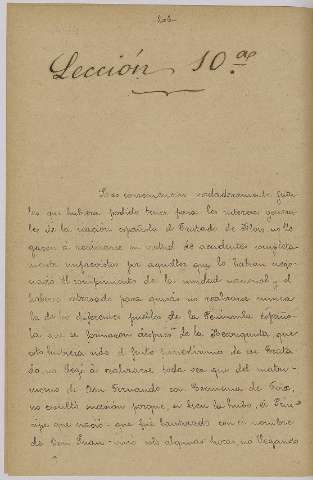 Lección 10.ª
Las consecuencias verdaderamente fata
les que hubiera podido tener para los intereses genera
les de la nación española el Tratado de Blois no lle
garon á realizarse en virtud de accidentes completa
mente impensados por aquellos que lo habían nego
ciado. El rompimiento de la unidad nacional y el
haberse alargado para quizás no realizarse nunca
la de los diferentes pueblos de la Península españo
la que se formaron después de la Reconquista, que
esto hubiera sido el fruto
no llegó á realizarse toda vez que del matri
monio de Don Fernando con Germana de Foix,
no resultó sucesión porque, si bien la hubo, el Prin
cipe que nació - que fué bautizado con el nombre
de Don Juan - vivió sólo algunas horas, no llegando